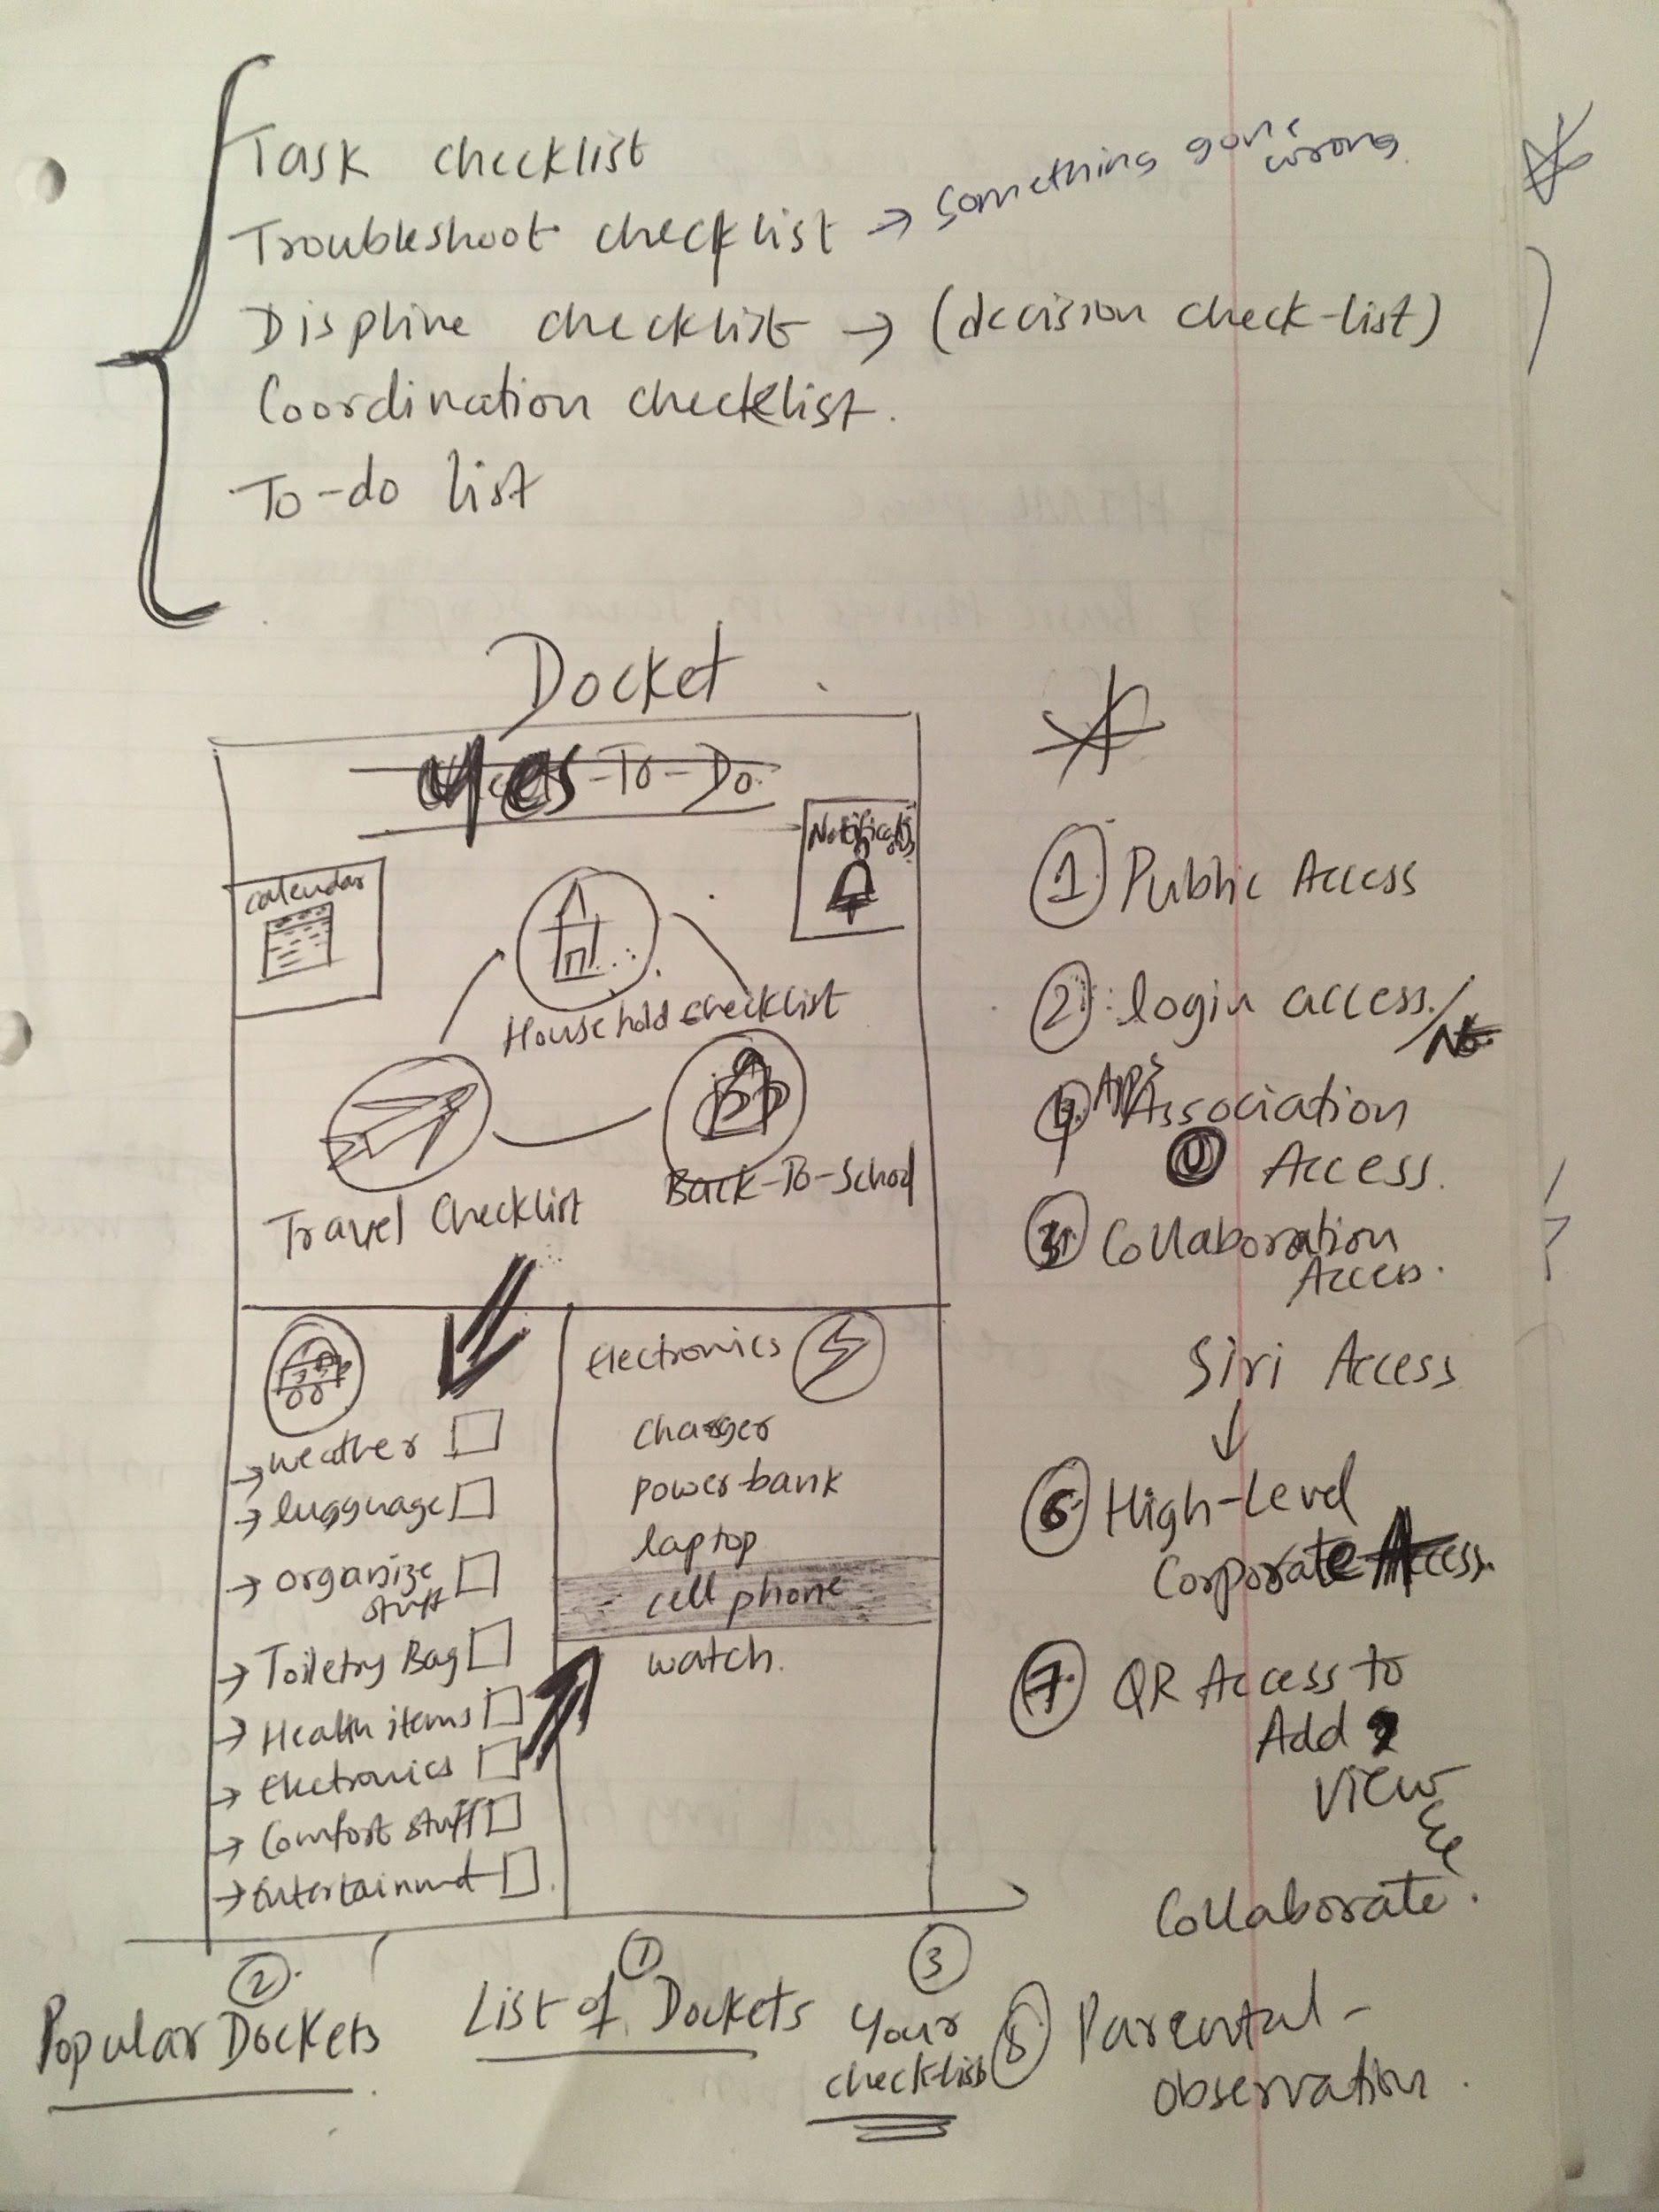 Task checklist
Troubleshoot checklist → something gone wrong.
Displine checklist → (decision check-list)
Coordination checklist.
To-do list
Docket
-To-Do.
calendar
Household checklist
Travel Checklist
Back-To-School
→ weather
→ lugguage
→ organize stuff
→ Toiletry Bag
→ Health items
→ Electronics
→ Comfort stuff
Electronics
charger
power-bank
laptop
cell phone
watch.
② Popular Dockets
① List of Dockets
③ Your checklist
① Public Access
② login access/No.
④ Association
Access.
③ Collaboration
Access.
Siri Access
↓
⑥ High-Level
Corporate Access.
⑦ QR Access to
Add
View
Collaborate.
⑧ Parental-
observation.